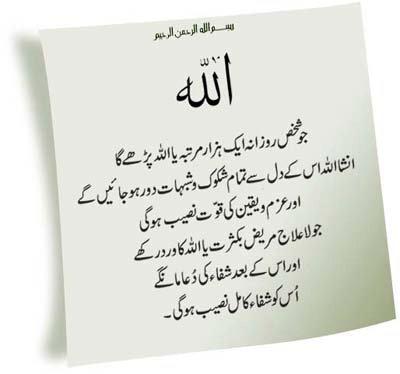 بسم الله الرحمن الرحيم
الله
جو شخص روزانہ ایک ہزار مرتبہ یا اللہ پڑھے گا
انشا اللہ اس کے دل سے تمام شکوک و شبہات دور ہو جائیں گے
اور عزم و یقین کی قوت نصیب ہوگی
جو لا علاج مریض بکثرت یا اللہ کا ورد رکھے
اور اس کے بعد شفاء کی دُعا مانگے
اُس کو شفاء کامل نصیب ہوگی۔